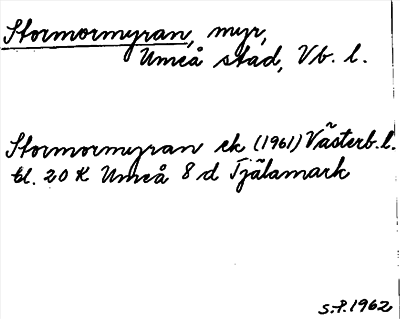 Stormormyran, myr,
Umeå stad, Vb. l.
Stormormyran ek (1961) Västerb. l.
bl. 20 K Umeå 8 d Tjälamark
S.P. 1962